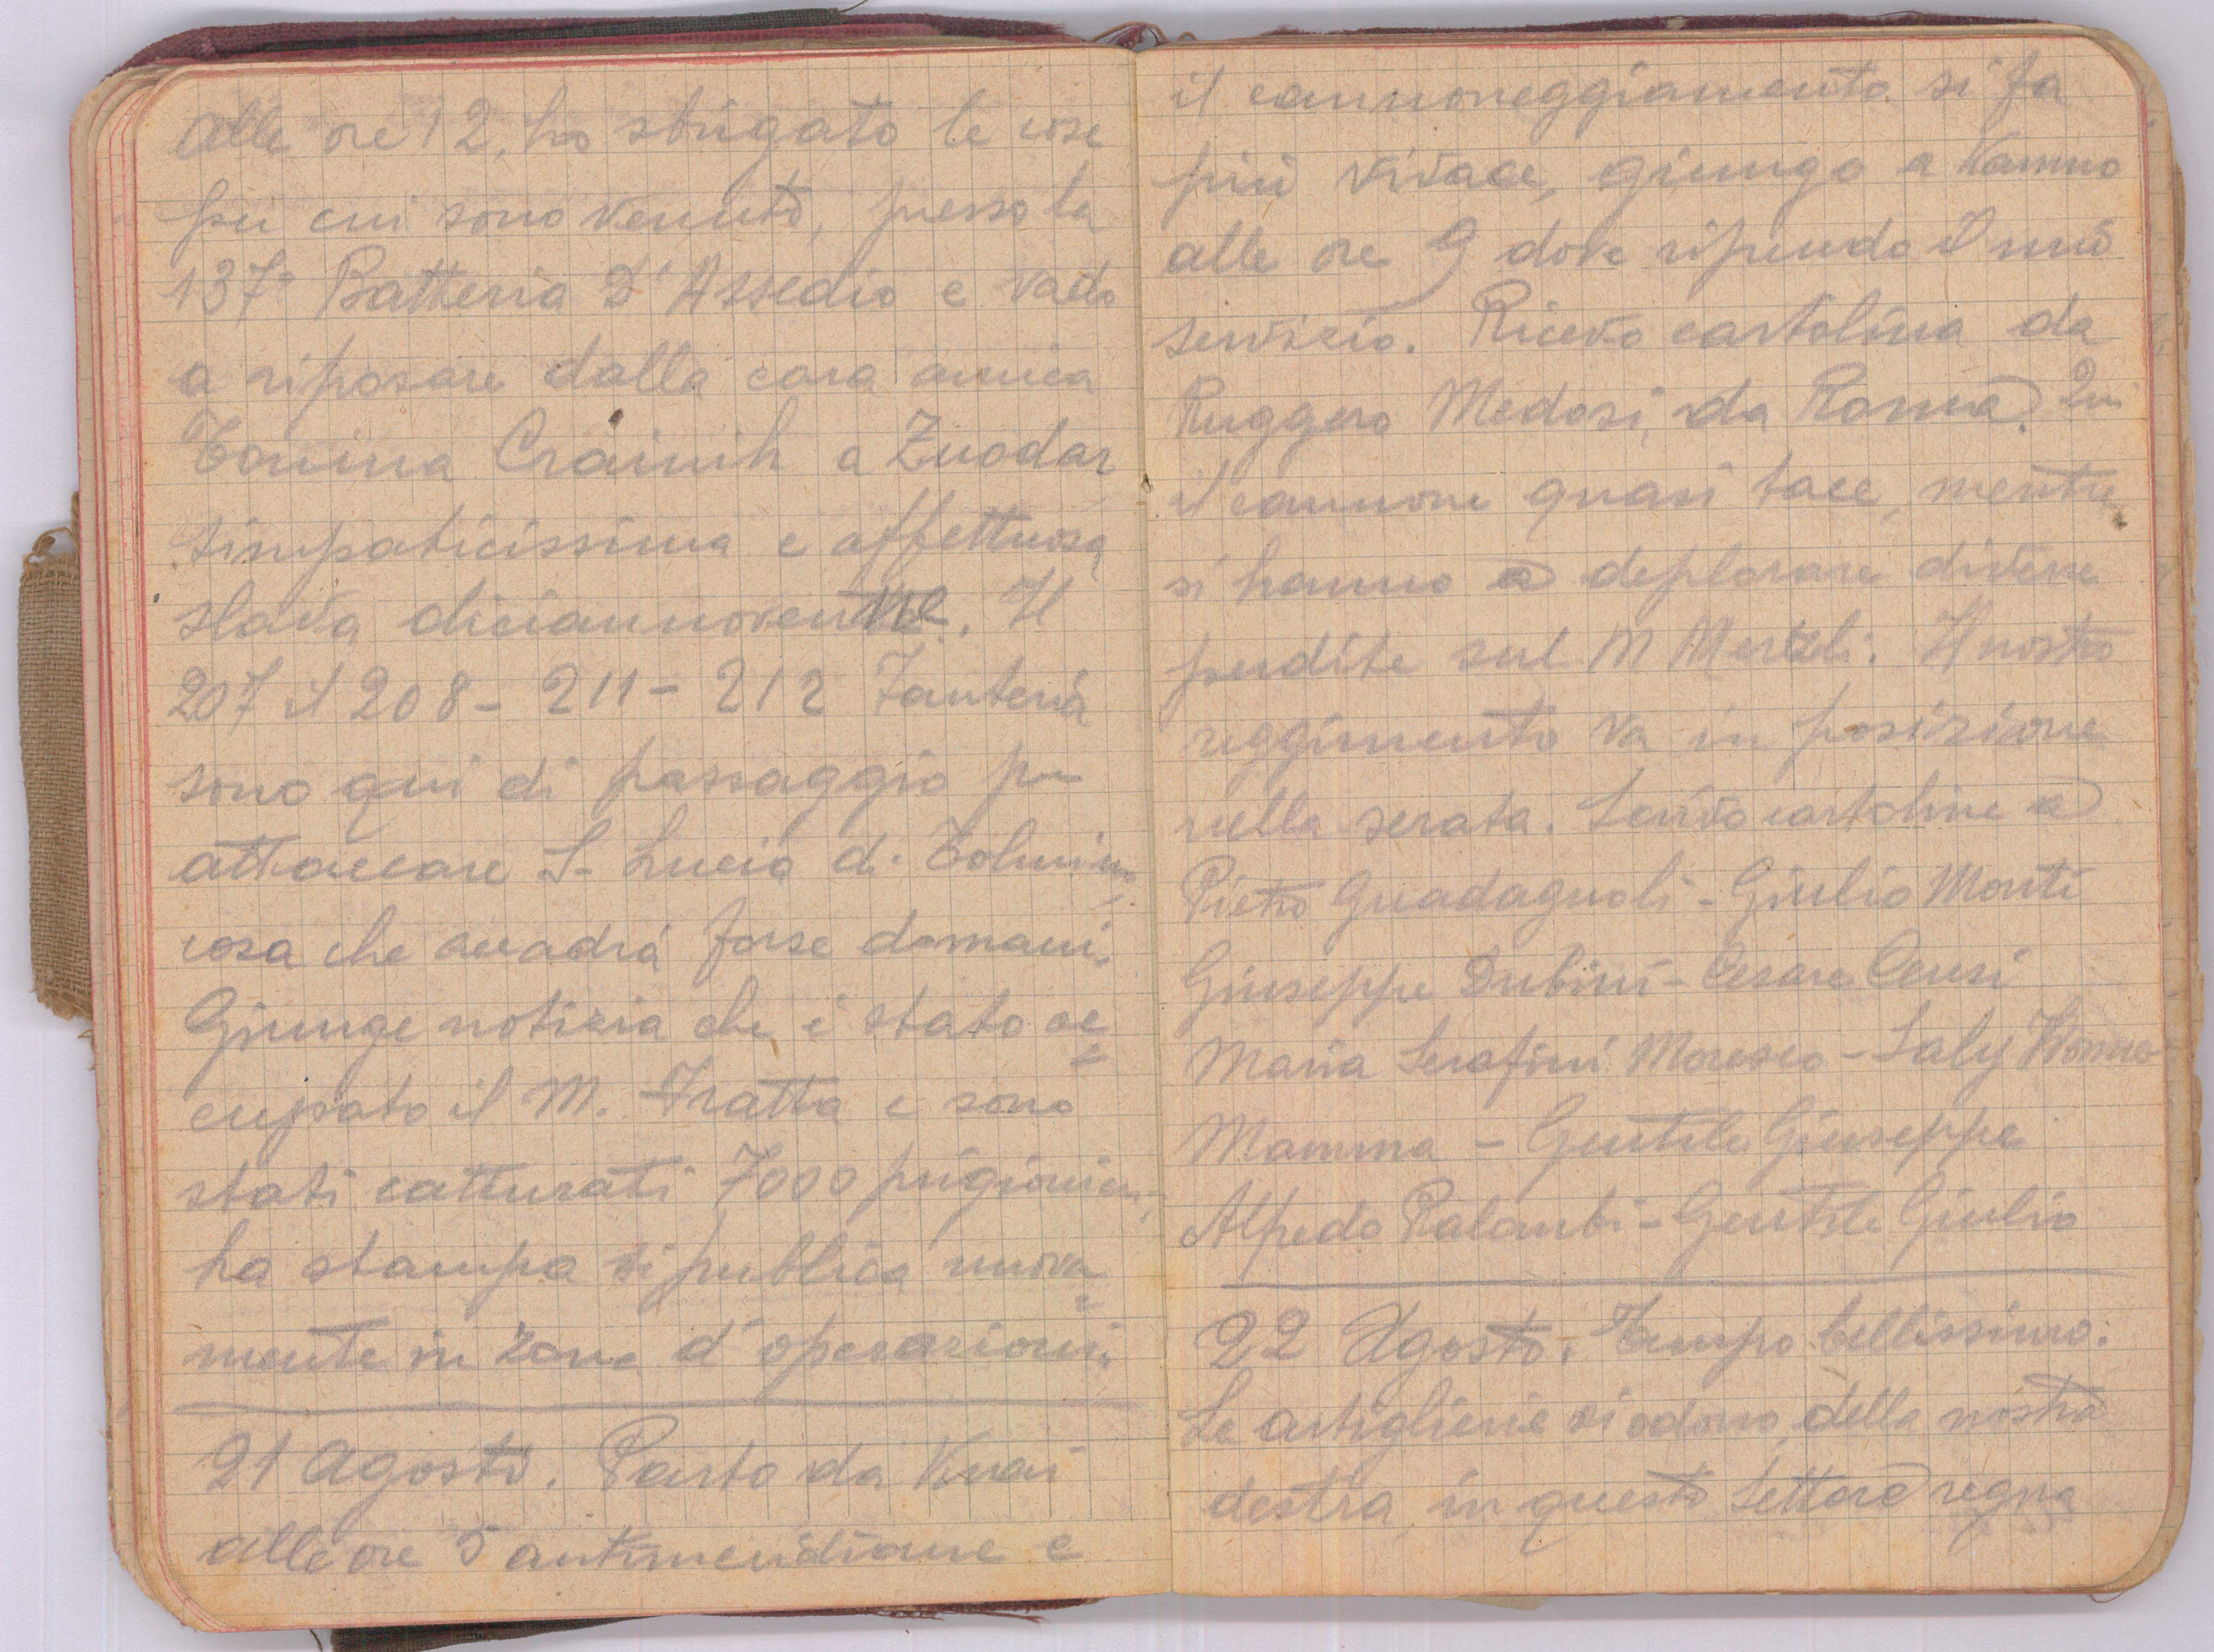 Alle ore 12, ho sbrigato le cose
per cui sono venuto, presso la
137ª Batteria d'Assedio e vado
a riposare dalla cara amica
Tonina Crainih a Zuodar
simpaticissima e affettuosa
slava diciannovenne. Il
207 il 208 - 211 - 212 Fanteria
sono qui di passaggio per
attaccare S. Lucia di Tolmino,
cosa che accadrà forse domani.
Giunge notizia che è stato oc=
cupato il M. Fratta e sono
stati catturati 7000 prigionieri,
la stampa si pubblica nuova=
mente in zona d'operazioni.
21 Agosto. Parto da
alle ore 5 antimeridiane e
il cannoneggiamento si fa
più vivace, giungo a
alle ore 9 dove riprendo il mio
servizio. Ricevo cartolina da
Ruggero Medosi, da Roma. Qui
il cannone quasi tace, mentre
si hanno a deplorare diverse
perdite sul M Merzli. Il nostro
reggimento va in posizione
nella serata. Scrivo cartoline a
Pietro Guadagnoli - Giulio Monti
Giuseppe Dubini - Cesare Censi
Maria Serafini Moresco - Saly
Mamma - Gentile Giuseppe
Alfredo Palombi - Gentile Giulio
22 Agosto. Tempo bellissimo.
Le artiglierie si odono, della nostra
destra, in questo settore regna